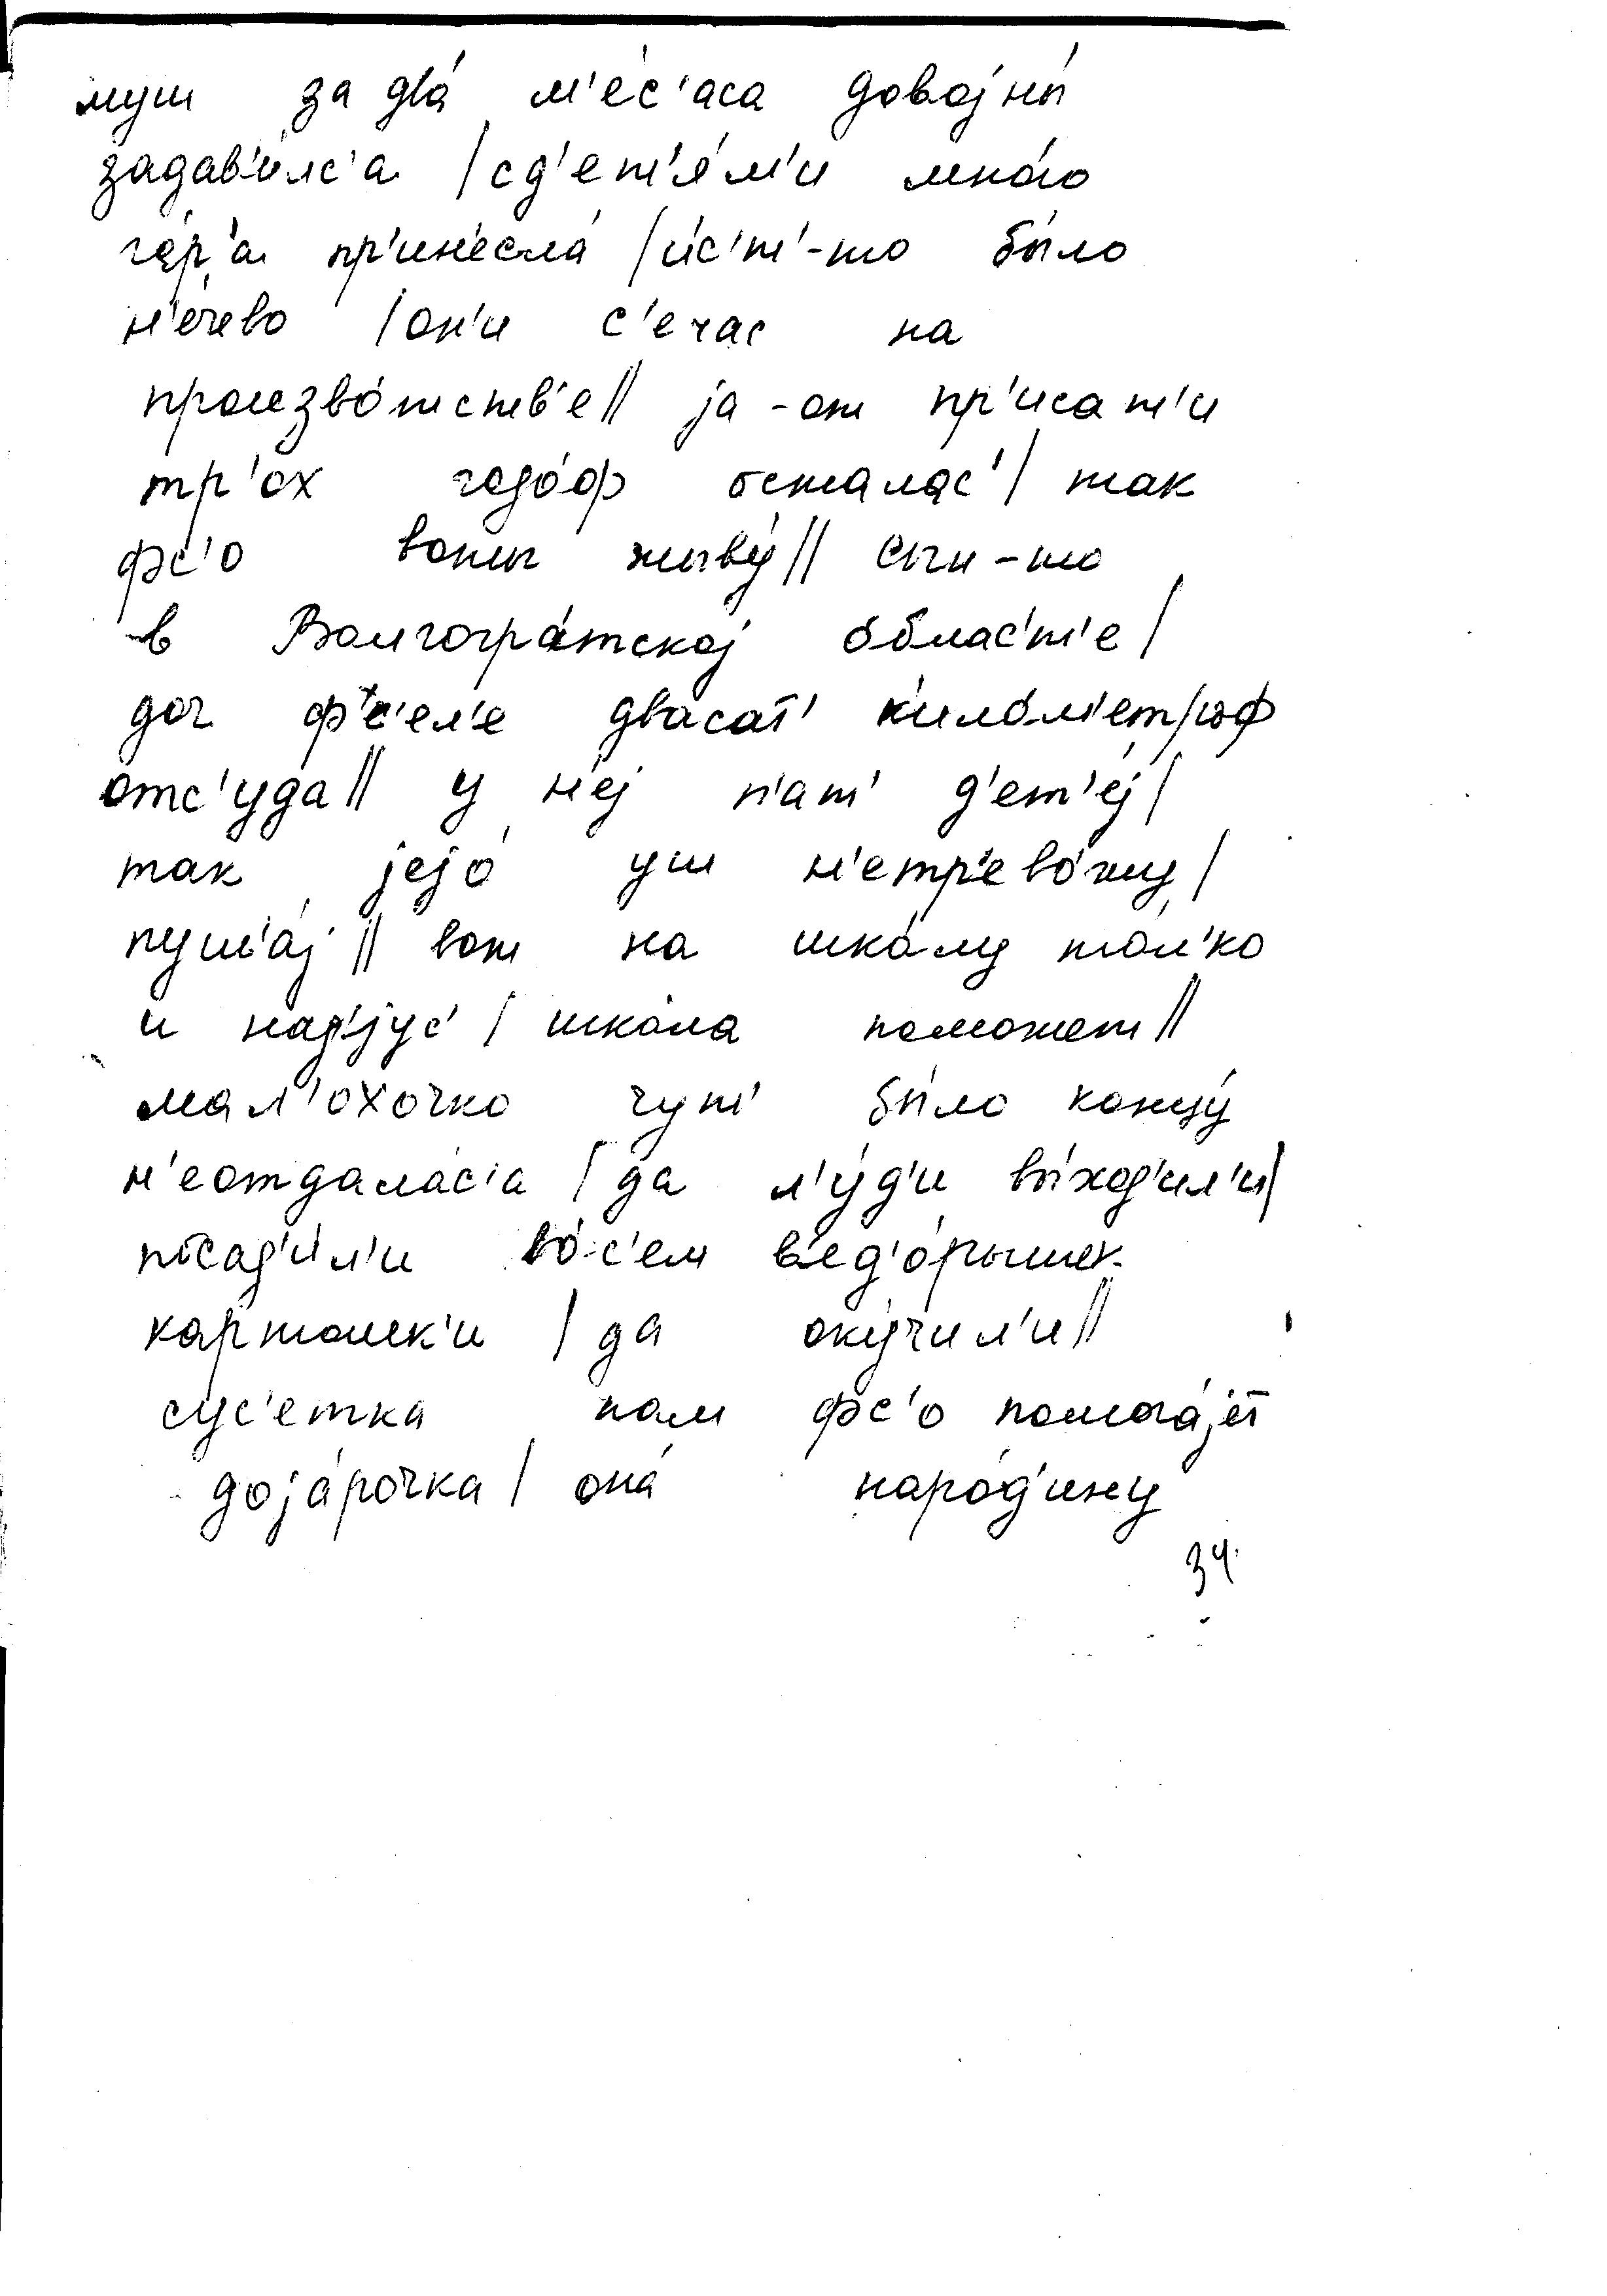 муш за два́ м'е́с'аса довоjны́
задав'и́лс'а | сд'ет'а́м'и мно́го
го́р'а пр'ин'есла́ | и́с'т'-то бы́ло
н'е́чево | он'и с'ечас на
произво́тств'е || jа -от пр'исат'и
тр'ох годо́ф осталас' | так
фс'о воты жыву́ || сын-то
в Волгогра́тскоj о́блас'т'е |
доч ф с'ел'е двасат' к'ило́м'етроф
отс'уда || у н'еj п'ат' д'ет'е́j |
так jеjо́ уш н'етр'ево́жу |
пушш'а́j || вот на шко́лу тол'ко
и над'jус' | шко́ла поможет ||
мал'охочко чут' бы́ло концу́
н'еотдала́с'а | да л'у́д'и вы́ход'ил'и |
посад'и́л'и во́с'ем в'ед'о́рышек
картошк'и | да оку́чил'и ||
сус'етка нам фс'о помога́jет
доjа́рочка | она́ наро́д'ину
34.